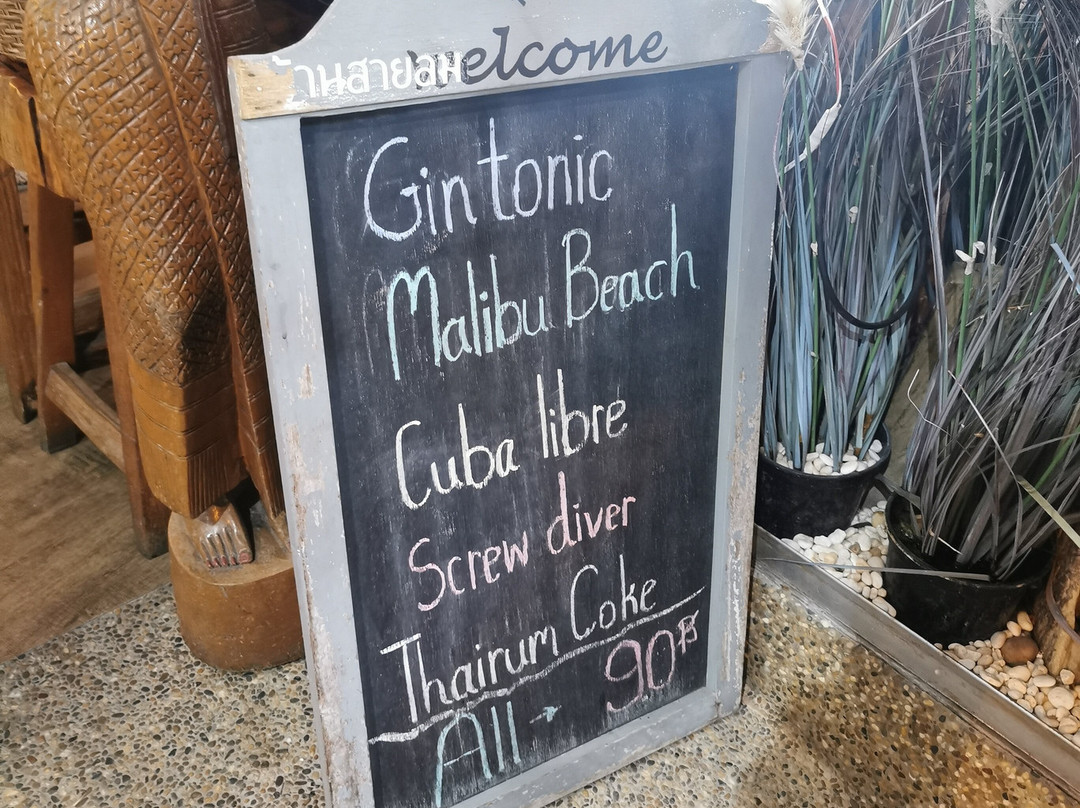 welcome
บ้านสายลม
Gin tonic
Malibu Beach
Cuba libre
Screw diver
Thairum Coke
All → 90฿